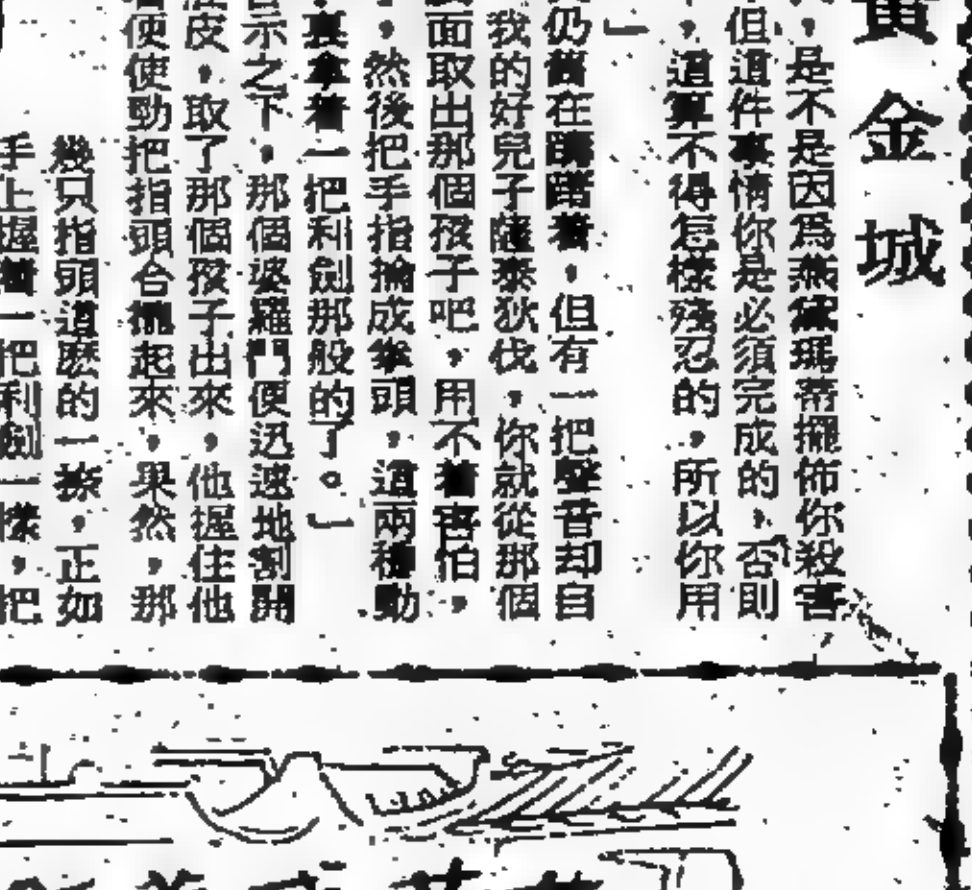 黃金城
，是不是因爲燕黛瑪蒂擺佈你殺害
但這件事情你是必須完成的，否則
，這算不得怎樣殘忍的，所以你用
」
仍舊在躊躇着，但有一把聲音却自
我的好兒子薩泰狄伐，你就從那個
面取出那個孩子吧，用不着害怕，
，然後把手指掄成拳頭，這兩種動
裏拿着一把利劍那般的了。」
示之下，那個婆羅門便迅速地割開
皮，取了那個孩子出來，他握住他
便使勁把指頭合攏起來，果然，那
幾只指頭這麽的一撩，正如
手上握着一把利劍一樣，把